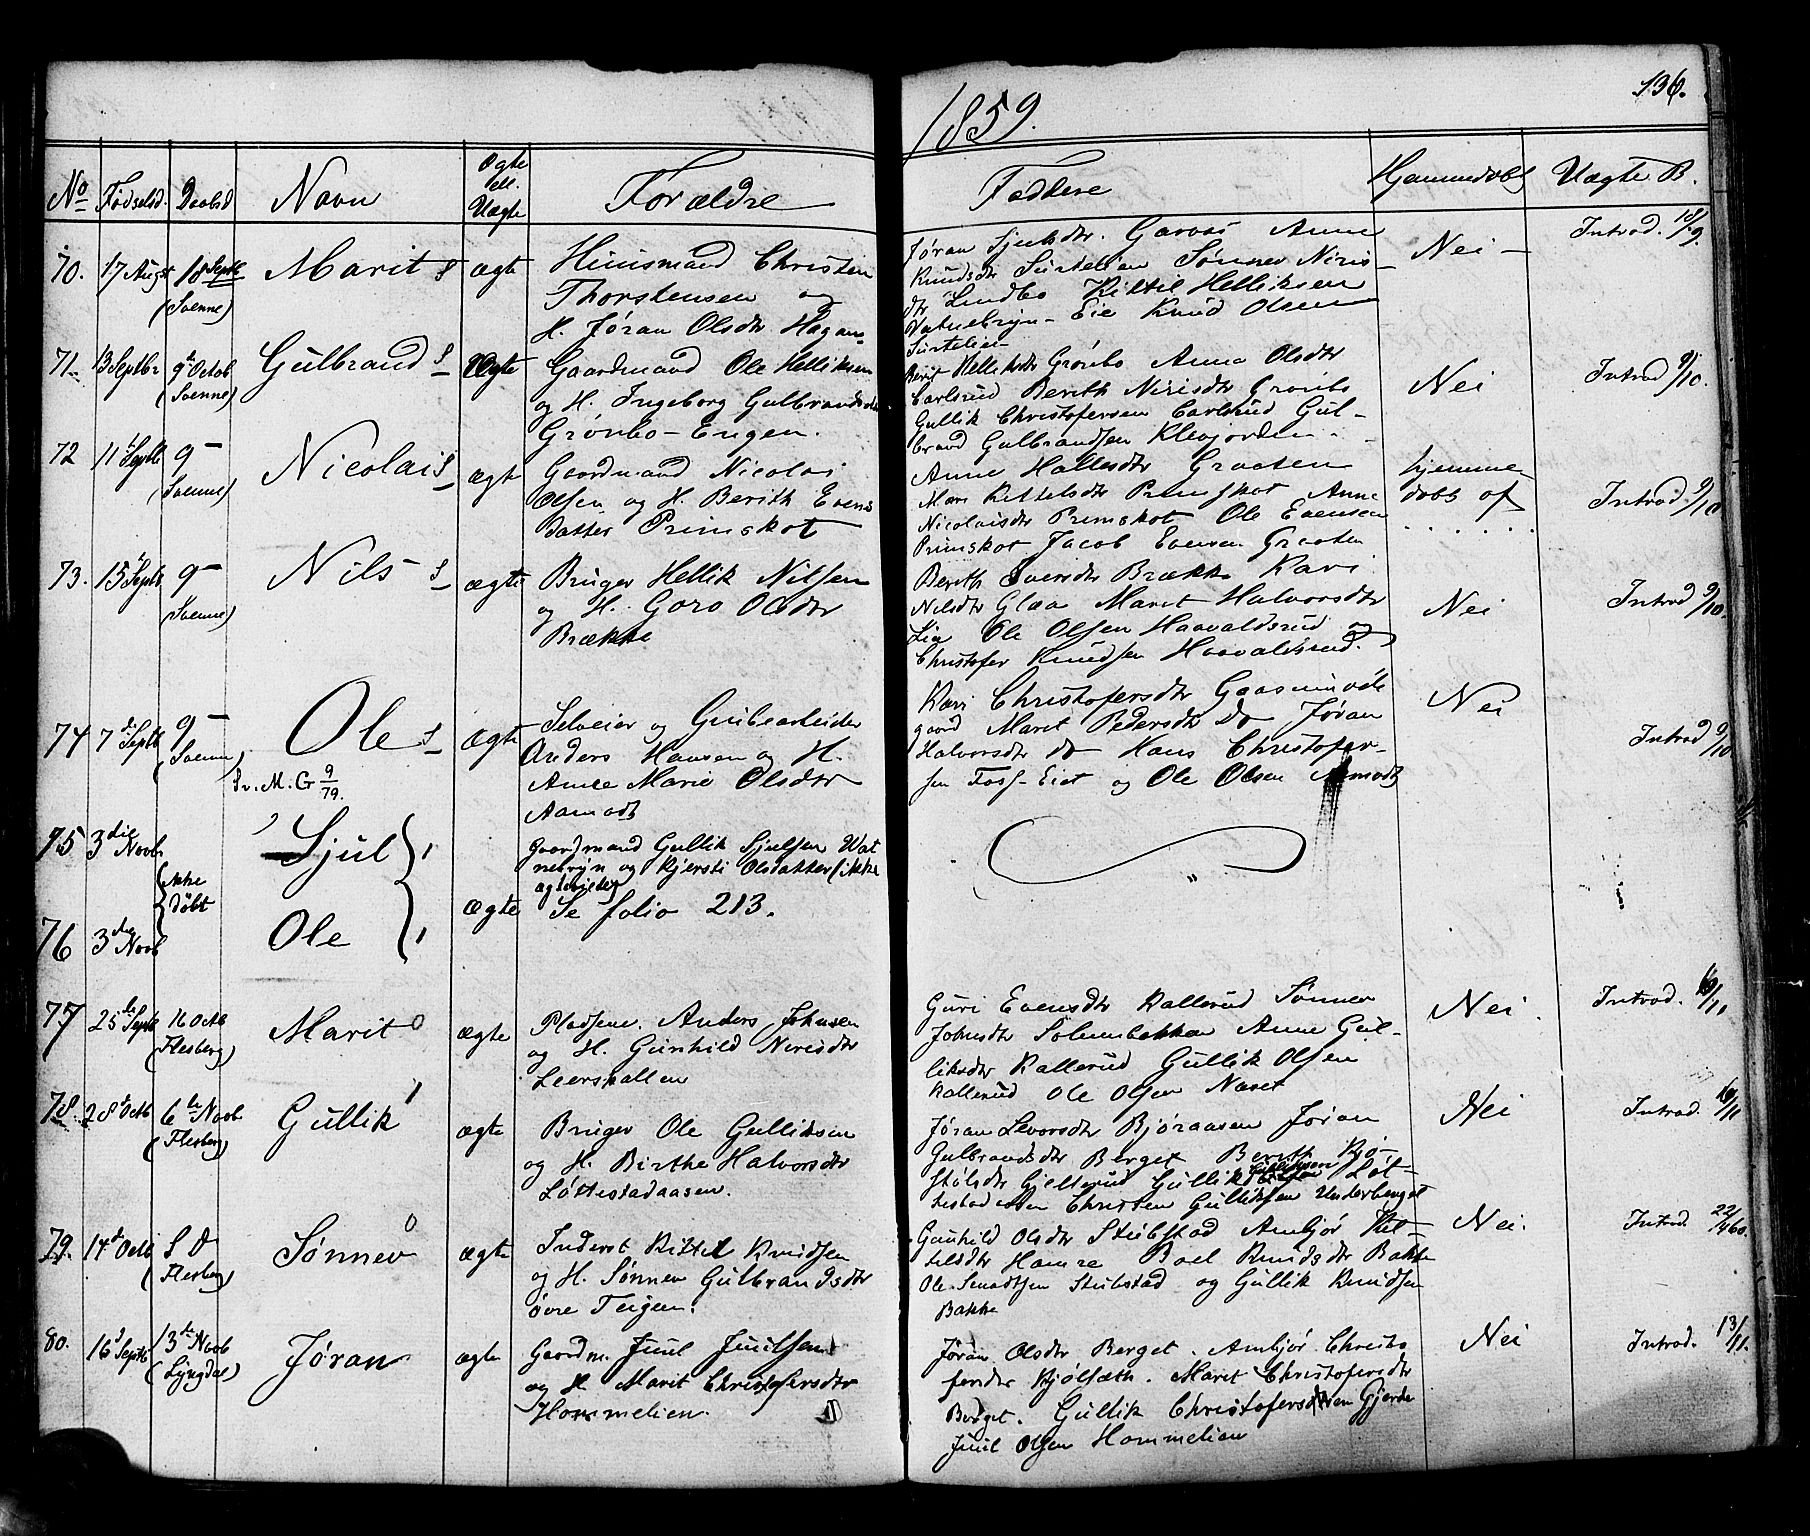 136.
1859.
No Fødselsd. Daabsd Navn Ægte ell. Uægte Forældre Faddere Hjemmedøbt Uægte B.
70. 17 Augst 18 Septb (Svenne) Marit ægte
Huusmand Christen
Thorstensen og
H. Jøran Olsdtr Hagan
Jøran Sjulsdtr. Garaas Anne
Knudsdtr Surtelien Sønnev Niris
dtr Lindbo Kittil Helliksen
Vatnebryn-Eie Knud Olsen
Surtelien
Nei
Introd. 18/9.
71. 13 Septbr 9de Octob (Svenne) Gulbrand Ægte
Gaardmand Ole Helliksen
og H. Ingeborg Gulbrandsdtr
Grønbo-Engen.
Berit Helliksdtr Grønbo Anne Olsdtr
Carlsrud Berith Nirisdtr Grønbo
Gullik Christofersen Carlsrud Gul-
brand Gulbrandsen Klevjorden.
Nei
Introd 9/10.
72 11 Septb 9- (Svenne) Nicolai ægte
Gaardmand Nicolai
Olsen og H. Berith Evens
datter Primskot
Anne Hallesdtr Graaten
Mari Kittelsdtr Primskot Anne
Nicolaisdtr Primskot Ole Evensen
Primskot Jacob Evensen Graaten
hjemme
døbt af
. . . . . .
Introd. 9/10
73. 15 Septb 9- (Svenne) Nils ægte
Bruger Hellik Nilsen
og H. Goro Olsdtr
Brække
Berith Sversdtr Brække Kari
Nilsdtr Glaa Maret Halvorsdtr
Lia Ole Olsen Haavaldsrud og
Christofer Knudsen Haavaldsrud.
Nei
Introd 9/10.
74 7de Septb 9- (Svenne) Ole ægte
Sv. M. G 9/79.
Selveier og Grubearbeider
Anders Hansen og H.
Anne Marie Olsdtr
Aamodt
Kari Christofersdtr Gaasmundde
gaard Maret Pedersdtr Do Jøran
Halvorsdtr do Hans Christofer-
sen Foss-Eiet og Ole Olsen Aamodt
Nei
Introd 9/10
75 3die Novb Sjul
Gaardmand Gullik Sjulsen Vat
nebryn og Kjersti Olsdatter (ikke
ægteviede)
(ikke døbt ægte Se folio 213.
76 3die Novb Ole
77 25de Septb 16 Octb (Flesberg) Marit ægte
Pladsm. Anders Johnsen
og H. Gunhild Nirisdtr
Leerskallen
Guri Evensdtr Kallerud Sønnev
Johnsdtr Solumbakken Anne Gul-
liksdtr Kallerud Gullik Olsen
Kallerud Ole Olsen Næset
Nei.
Introd. 6/11
78. 28de Octb 6te Novb (Flesberg) Gullik ægte
Bruger Ole Gulliksen
og H. Birthe Halvorsdtr
Løttestadaasen.
Jøran Levorsdtr Bjøraasen Jøran
Gulbrandsdtr Berget Berith Kjø-
stølsdtr Gjellerud Gullik Gulliksen Løt-
testadaasen Christen Gulliksen Underberget
Nei
Introd. 6/11
79. 14de Octb S D (Flesberg) Sønnev ægte
Inderst Kittil Knudsen
og H. Sønnev Gulbrandsdtr
øvre Teigen.
Gunhild Olsdtr Stubstad Ambjør Kit-
tilsdtr Hamre Boel Knudsdtr Bakke
Ole Knudsen Stubstad og Gullik Knudsen
Bakke
Nei.
Introd. 22/4 60.
80. 16 Septb 13de Novb (Lyngdal) Jøran ægte
Gaardm. Juul Juulsen
og H. Marit Christofersdtr
Hommelien.
Jøran Olsdtr Berget. Ambjør Christo
fersdtr Kjølsæth. Maret Christofersdtr
Berget. Gullik Christofersen Gjerde
Juul Olsen Hommelien
Nei
Introd. 13/11.